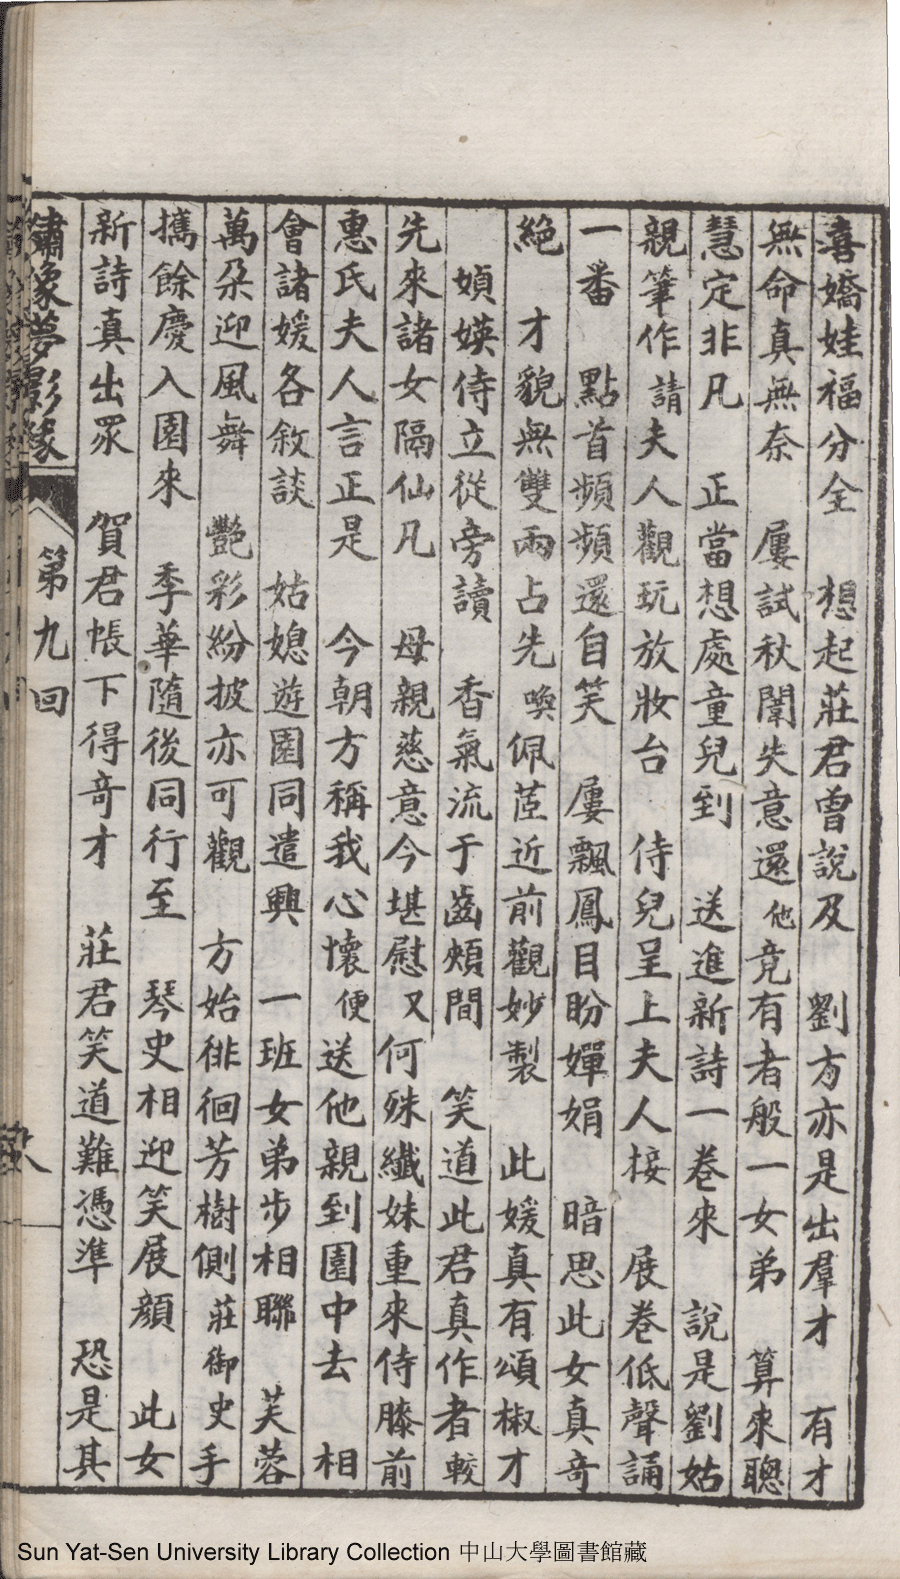 喜嬌娃福分全　想起莊君曾說及　劉方亦是出羣才　有才
無命真無奈　屢試秋闈失意還他竟有者般一女弟　算來聰
慧定非凡　正當想處童兒到　送進新詩一卷來　說是劉姑
親筆作請夫人觀玩放妝台　侍兒呈上夫人接　展卷低聲誦
一番　點首頻頻還自笑　屢飄鳳目盼嬋娟　暗思此女真奇
絕　才貌無雙兩占先喚佩茝近前觀妙製　此媛真有頌椒才
媜媖侍立從旁讀　香氣流于齒頰間　笑道此君真作者較
先來諸女隔仙凡　母親慈意今堪慰又何殊纖妹重來侍膝前
惠氏夫人言正是　今朝方稱我心懷便送他親到園中去　相
會諸媛各敘談　姑媳遊園同遣興　一班女弟步相聯　芙蓉
萬朵迎風舞　艷彩紛披亦可觀　方始徘徊芳樹側莊御史手
攜餘慶入園來　季華隨後同行至　琴史相迎笑展顏　此女
新詩真出眾　賀君帳下得奇才　莊君笑道難憑準　恐是其
繡像夢影緣　第九回　八
Sun Yat-Sen University Library Collection 中山大學圖書館藏